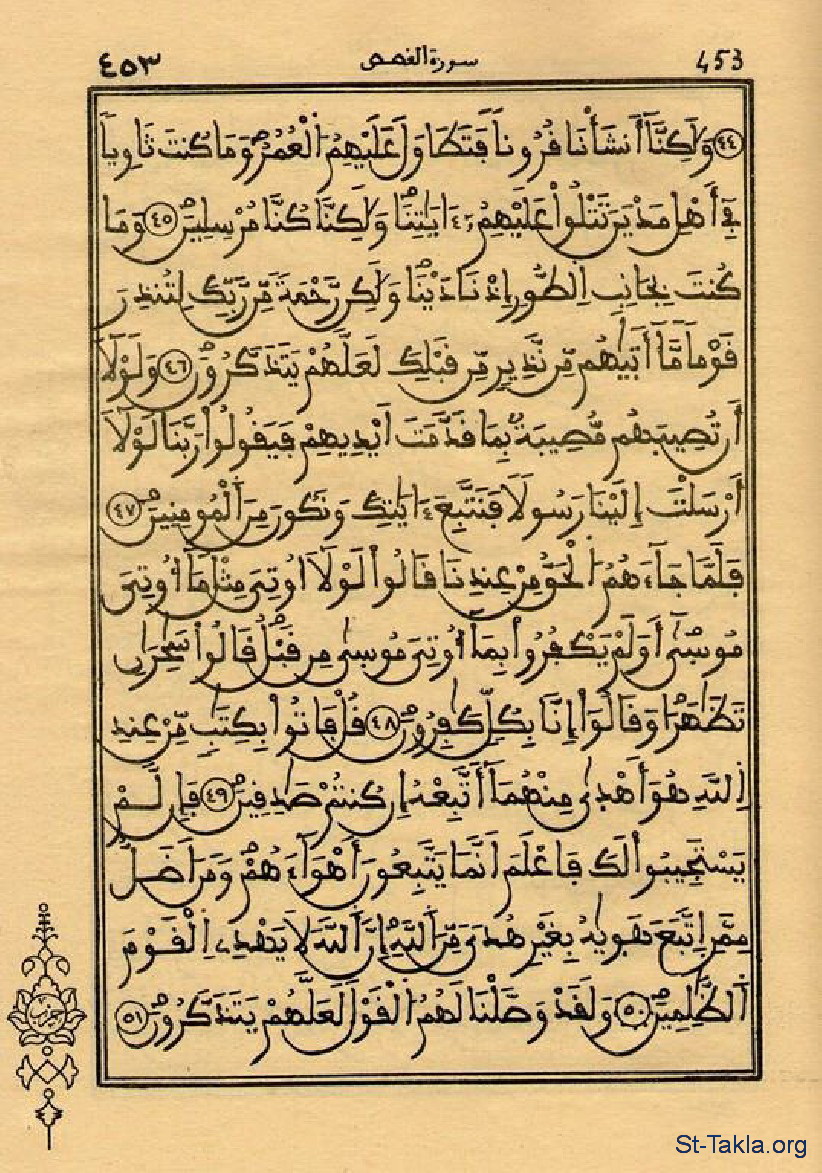 ٤٥٣ سورة القصص 453
٤٤ وَلَٰكِنَّآ أَنشَأْنَا فُرُوناٗ فَتَطَاوَلَ عَلَيْهِمُ اُلْعُمُرُۖ وَمَا كُنتَ ثَاوِياٗ
فِےٓ أَهْلِ مَدْيَنَ تَتْلُواْ عَلَيْهِمُۥٓ ءَايَٰتِنَاۖ وَلَٰكِنَّا كُنَّا مُرْسِلِينَۖ ٤٥ وَمَا
كُنتَ بِجَانِبِ اِلطُّورِ إِذْ نَادَيْنَاۖ وَلَٰكِن رَّحْمَةٗ مِّن رَّبِّكَ لِتُنذِرَ
قَوْماٗ مَّآ أَتَيٰهُم مِّن نَّذِيرٖ مِّن قَبْلِكَ لَعَلَّهُمْ يَتَذَكَّرُونَۖ ٤٦ وَلَوْلَآ
أَن تُصِيبَهُم مُّصِيبَةُۢ بِمَا قَدَّمَتَ اَيْدِيهِمْ فَيَقُولُواْ رَبَّنَا لَوْلَآ
أَرْسَلْتَ إِلَيْنَا رَسُولاٗ فَنَتَّبِعَ ءَايَٰتِكَ وَنَكُونَ مِنَ اَلْمُومِنِينَۖ ٤٧
فَلَمَّا جَآءَهُمُ اُلْحَقُّ مِنْ عِندِنَا قَالُواْ لَوْلَآ أُوتِيَ مِثْلَ مَآ أُوتِيَ
مُوسۭيٰٓۖ أَوَلَمْ يَكْفُرُواْ بِمَآ أُوتِيَ مُوسۭيٰ مِن قَبْلُۖ قَالُواْ سَٰحِرَٰنِ
تَظَٰهَرَاۖ وَقَالُوٓاْ إِنَّا بِكُلّٖ كَٰفِرُونَۖ ٤٨ قُلْ فَاتُواْ بِكِتَٰبٖ مِّنْ عِندِ
اِللَّهِ هُوَ أَهْدۭيٰ مِنْهُمَآ أَتَّبِعْهُ إِن كُنتُمْ صَٰدِقِينَۖ ٤٩ فَإِن لَّمْ
يَسْتَجِيبُواْ لَكَ فَاعْلَمَ اَنَّمَا يَتَّبِعُونَ أَهْوَآءَهُمْۖ وَمَنَ اَضَلُّ
مِمَّنِ اِتَّبَعَ هَوۭيٰهُ بِغَيْرِ هُديٗ مِّنَ اَللَّهِۖ إِنَّ اَللَّهَ لَا يَهْدِے اِلْقَوْمَ
اَلظَّٰلِمِينَۖ ٥٠ وَلَقَدْ وَصَّلْنَا لَهُمُ اُلْقَوْلَ لَعَلَّهُمْ يَتَذَكَّرُونَۖ ٥١
St-Takla.org